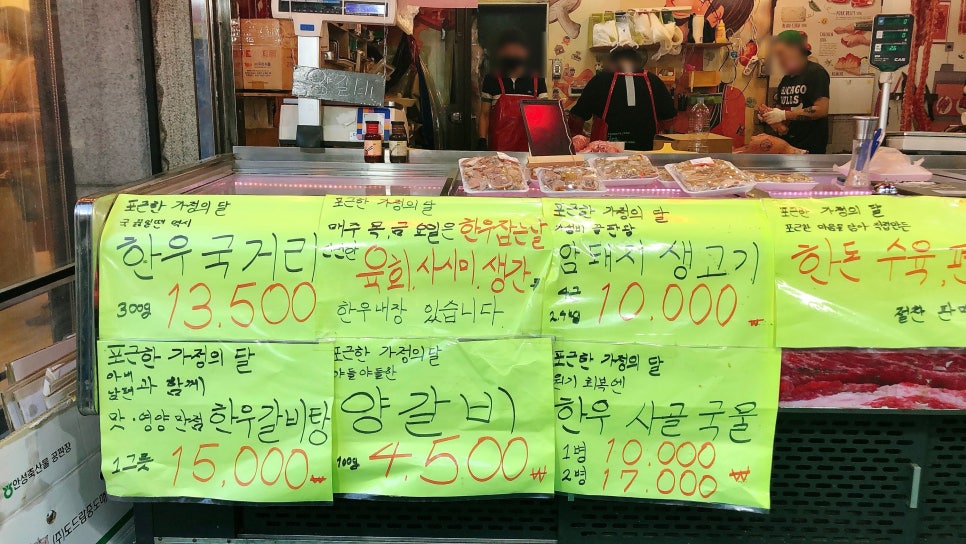 포근한 가정의 달
국 끓일땐 역시
한우국거리
300g 13,500
포근한 가정의 달
매주 목,금 요일은 한우잡는날
신선한
육회, 사시미, 생간
한우내장 있습니다
포근한 가정의 달
암돼지 생고기
10,000 ₩
포근한 가정의 달
포근한 마음을 담아 직접만든
한돈 수육,편
절찬 판매
포근한 가정의 달
아내
남편 과 함께
맛·영양 만점 한우갈비탕
1그릇 15,000 ₩
포근한 가정의 달
야들야들한
양갈비
100g 4,500 ₩
포근한 가정의 달
원기 회복에
한우 사골국물
1병 10,000
2병 17,000 ₩
안성축산물 공판장
(주)도드람푸드
CHICAGO
BULLS
CAS